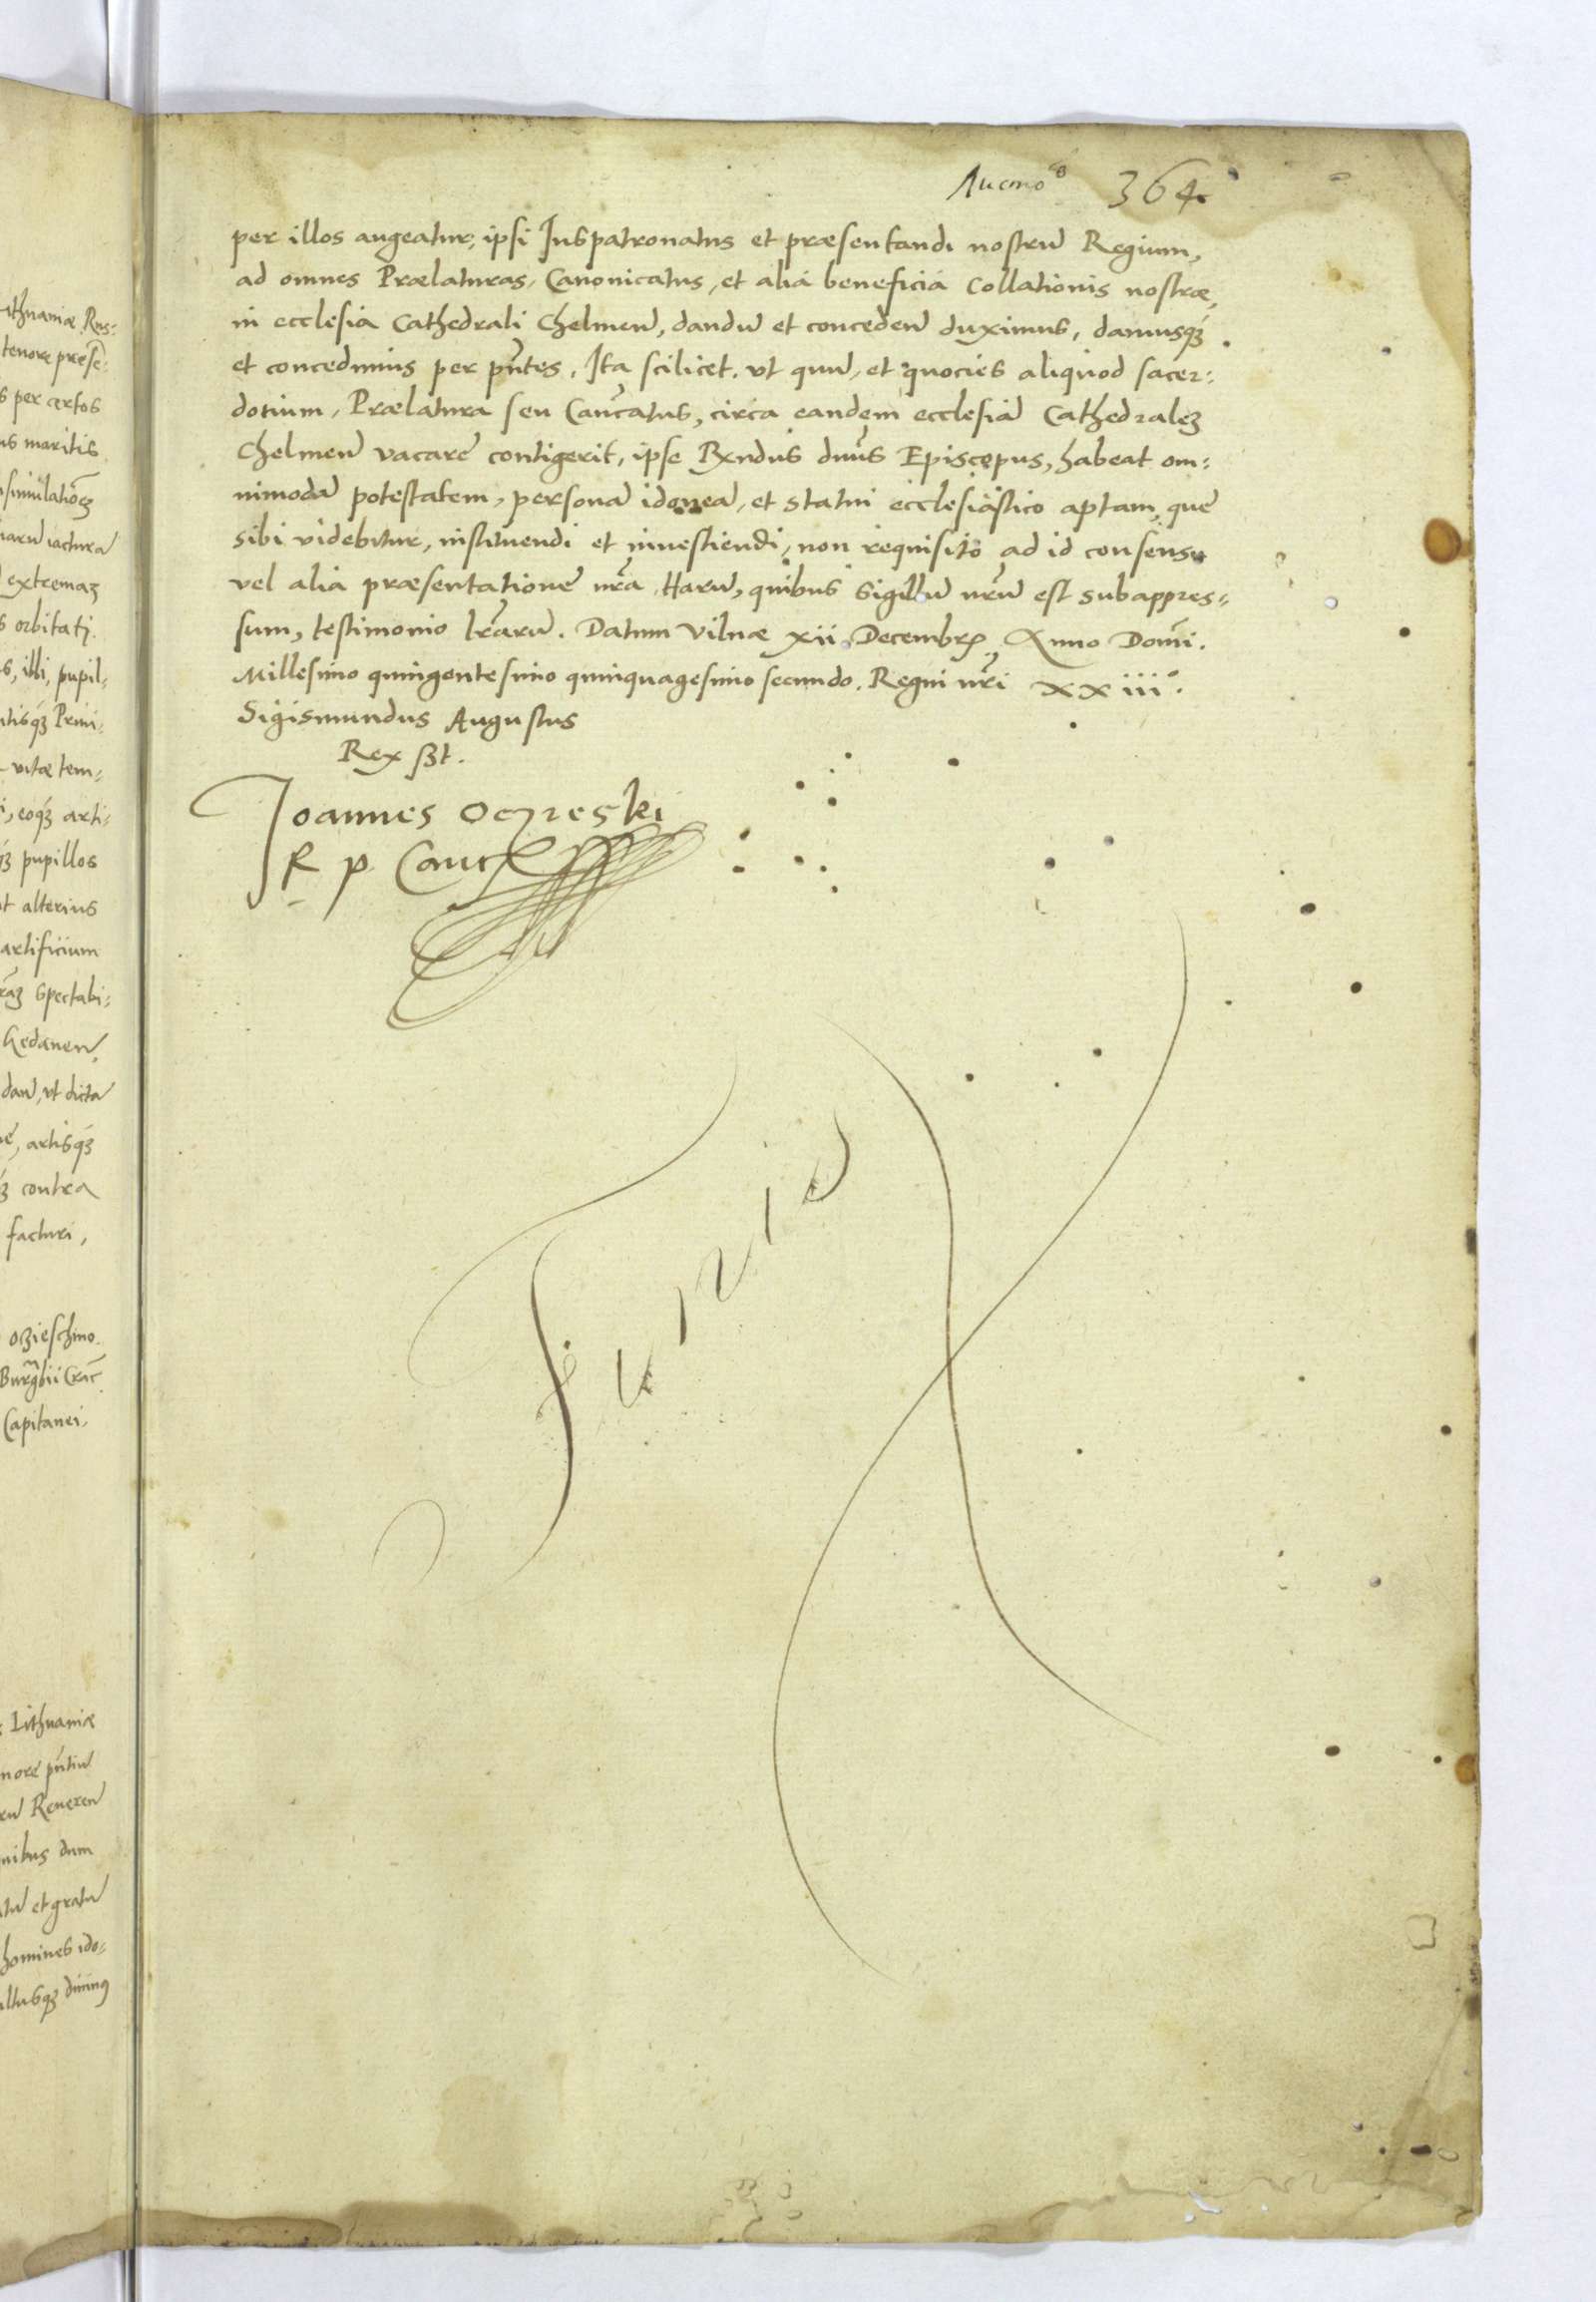 364
per illos augeatur, ipsi Juspatronatus et præsentandi nostrū Regium,
ad omnes Prælaturas, Canonicatus, et aliá beneficiá Collationis nostræ,
in ecclesia Cathedrali Chelmeñ, dandū et concedeñ duximus, damusqꝫ
et concedimus per pñtes. Ita scilicet. vt quū, et quocies aliquod sacer:
dotium, Prælatura seu Cañcatus, circa eandem ecclesiā Cathedralеꝫ
Chelmeñ vacare contigerit, ipse Rxndus dnus Episcopus, habeat om:
nimodā potestatem, personā idoneā, et statui ecclesiástico aptam, quę
sibi videbitur, instituendi et inuestiendi, non requisito ad id consensu
vel aliá præsentatione nrã. Harū, quibus Sigillū nrũ est subappres:
sum, testimonio lrãrū. Datum Vilnæ xii Decembrꝭ, Anno Domĩ.
Millesimo quingentesimo quinquagesimo secundo. Regni nrĩ xxiii°.
Sigismundus Augustus
Rex sßt.
Joannes Oczieski
R P Canc
Lithuaniæ, Rus:
tenore præsē:
s per certos
us maritis
simulatiōeꝫ
iarū iactura
extremaꝫ
s orbitati.
s, illi, pupil:
ntisqꝫ Prin:
vitæ tem:
i, eoqꝫ arti:
qꝫ pupillos
t alterius
artificium
Spectabi:
kedaneñ
dañ, vt dicta
, artisqꝫ
ꝫ contra
facturi,
Ozieschino
Burgbii Crac
Capitanei.
Lithuaniæ
more pñtiū
Reueren
nibus dum
tū et gratū
homines ido: